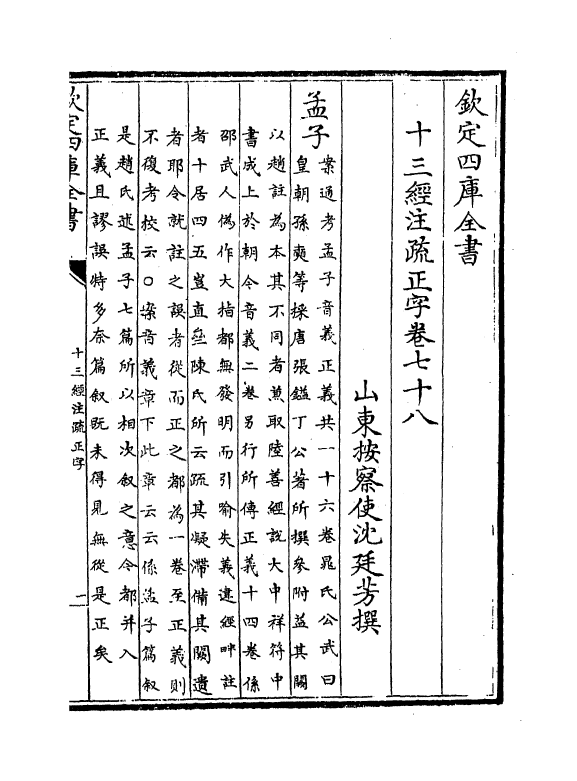 欽定四庫全書
十三經注疏正字卷七十八
山東按察使沈廷芳撰
孟子
案通考孟子音義正義共一十六卷晁氏公武曰
皇朝孫奭等採唐張鎰丁公著所撰參附益其闕
以趙註為本其不同者兼取陸善經說大中祥符中
書成上於朝今音義二卷另行所傳正義十四卷係
邵武人偽作大指都無發明而引喻失義違經畔註
者十居四五豈直無陳氏所云疏其凝滯備其闕遺
者耶今就註之誤者從而正之都為一卷至正義則
不復考校云○案音義章下此章云云係孟子篇叙
是趙氏述孟子七篇所以相次叙之意今都并入
正義且謬誤特多奈篇叙既未得見無從是正矣
欽定四庫全書
十三經注疏正字
一